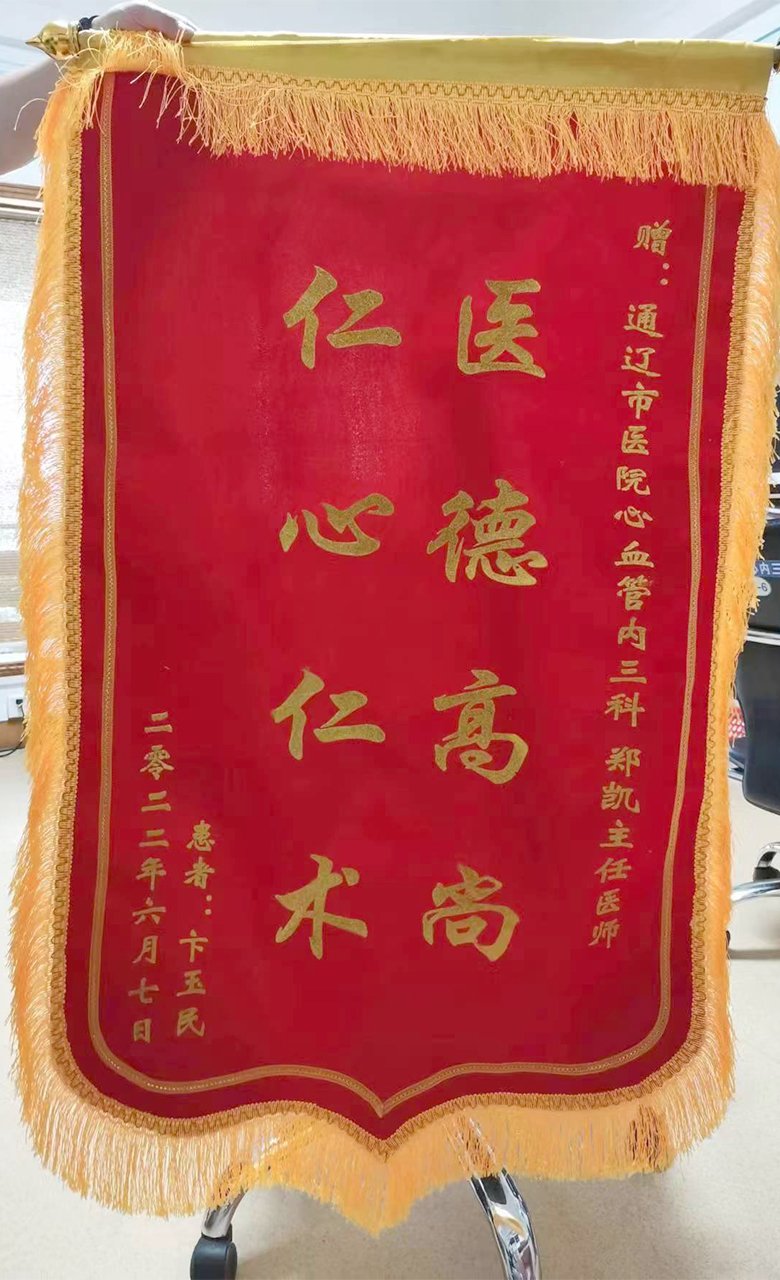 赠：通辽市医院心血管内三科 郑凯主任医师
医德高尚
仁心仁术
患者：卞玉民
二零二二年六月七日
内三
-6